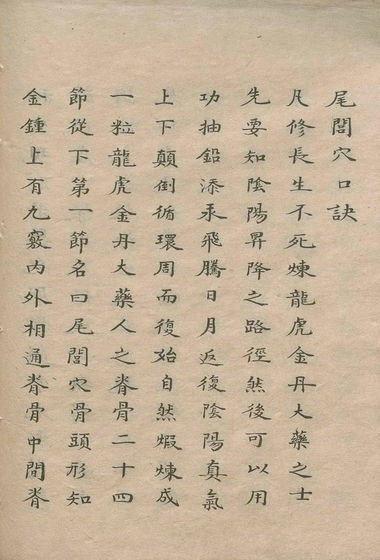 尾閭穴口訣
凡修長生不死煉龍虎金丹大藥之士
先要知陰陽昇降之路徑然後可以用
功抽鉛添汞飛騰日月返復陰陽真氣
上下顛倒循環周而復始自然煅煉成
一粒龍虎金丹大藥人之脊骨二十四
節從下第一節名曰尾閭穴骨頭形知
金鍾上有九竅內外相通脊骨中間脊